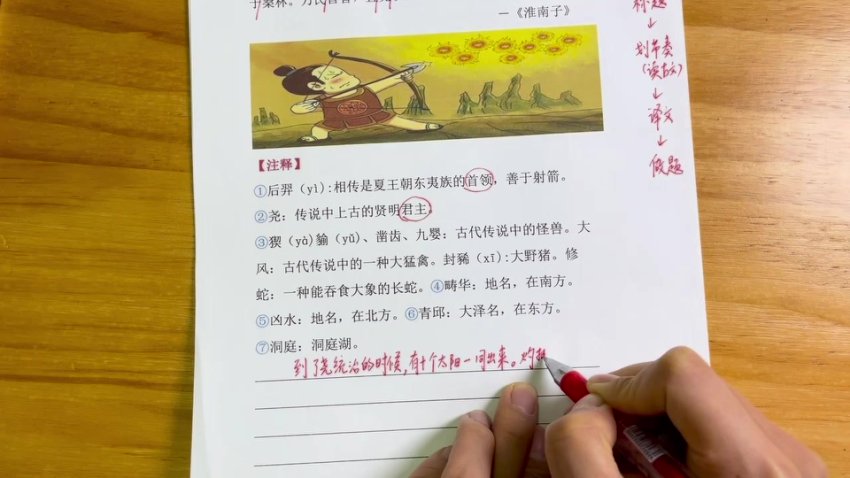 于桑林。万民皆喜，
—《淮南子》
标题
↓
划节奏
(读古文)
↓
译文
↓
做题
【注释】
①后羿（yì）:相传是夏王朝东夷族的首领，善于射箭。
②尧：传说中上古的贤明君主。
③猰（yà）貐（yǔ）、凿齿、九婴：古代传说中的怪兽。大
风：古代传说中的一种大猛禽。封豨（xī）:大野猪。修
蛇：一种能吞食大象的长蛇。④畴华：地名，在南方。
⑤凶水：地名，在北方。⑥青邱：大泽名，在东方。
⑦洞庭：洞庭湖。
到了尧统治的时候，有十个太阳一同出来。灼热